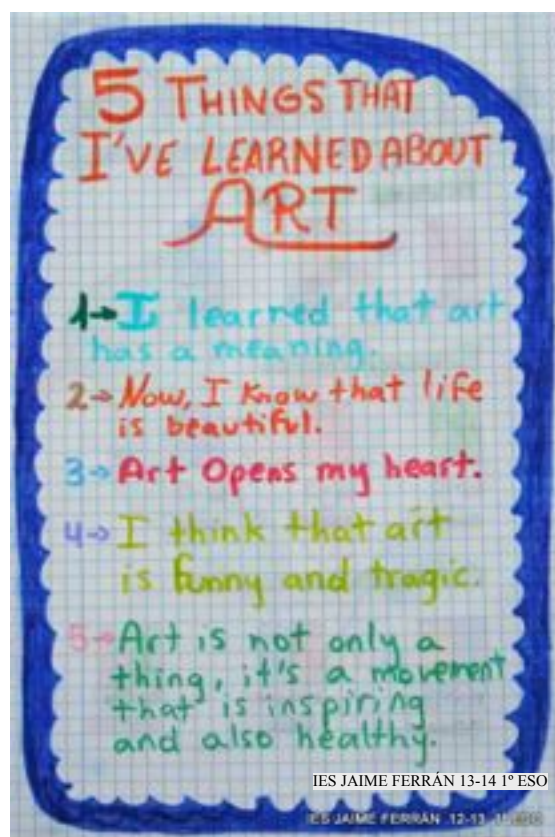 5 THINGS THAT
I'VE LEARNED ABOUT
ART
1→I learned that art
has a meaning.
2→Now, I know that life
is beautiful.
3→Art Opens my heart.
4→I think that art
is funny and tragic.
5→Art is not only a
thing, it's a movement
that is inspiring
and also healthy.
IES JAIME FERRÁN 13-14 1º ESO
IES JAIME FERRÁN 12-13 1º ESO